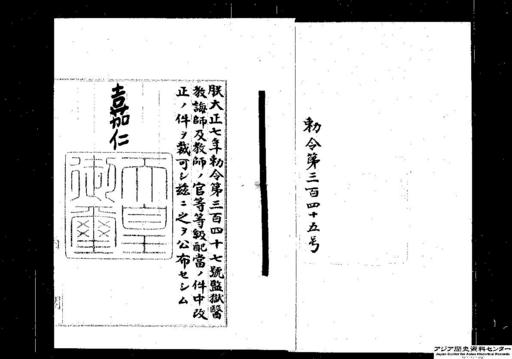 勅令第三百四十五号
朕大正七年勅令第三百四十七號監獄醫
教誨師及教師ノ官等等級配當ノ件中改
正ノ件ヲ裁可シ茲ニ之ヲ公布セシム
嘉仁
天皇
御璽
アジア歴史資料センター
Japan Center for Asian Historical Records